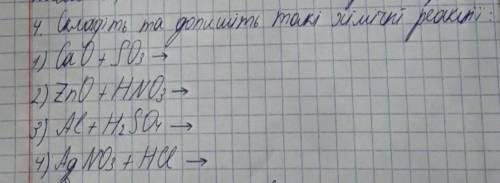 4. Складіть та допишіть такі хімічні реакції:
1) CaO + SO3 →
2) ZnO + HNO3 →
3) Al + H2SO4 →
4) AgNO3 + HCl →